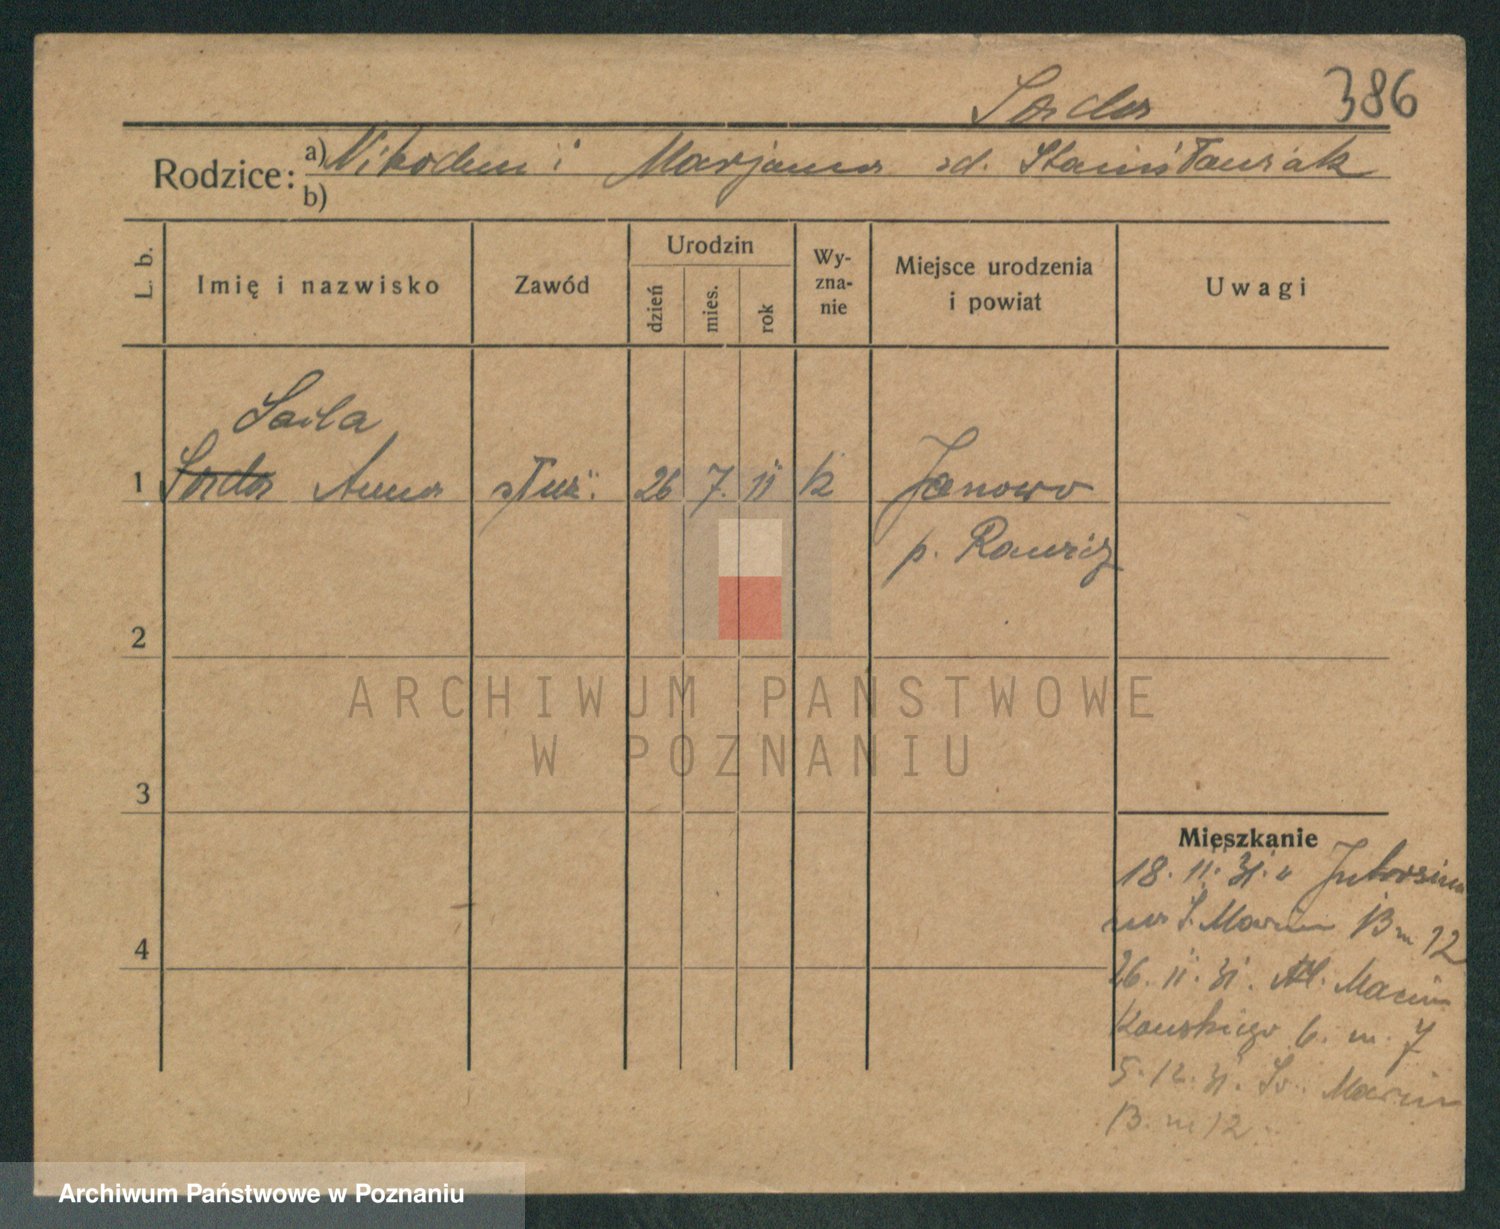 386
Rodzice: a) Nikodem i Marjanna zd. Stanisławiak
b)
L. b.
Imię i nazwisko
Zawód
Urodzin
dzień
mies.
rok
Wy-
zna-
nie
Miejsce urodzenia
i powiat
Uwagi
Sarla
1 Anna służ. 26 7. 11 k Janowo
p. Rawicz
2
ARCHIWUM PAŃSTWOWE
W POZNANIU
3
Mieszkanie
18. 11. 31. Jutrosina
S. Marcin 13 m 12
4
26. 11. 31. Al. Marcin
kowskiego 6. m. 7
5. 12. 31. Św. Marcin
13. m 12.
Archiwum Państwowe w Poznaniu